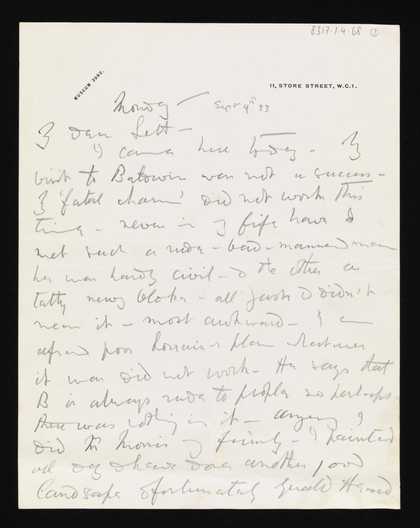 8317.1.4.68 ①
MUSEUM 7092.
11, STORE STREET, W.C.1.
Monday — Sept 4th 33
My dear Lett –
I came here today – My
visit to Batsworn was not a success –
My 'fatal charm' did not work this
time – never in my life have I
met such a rude – bad-mannered man
he was hardly civil – & the other a
tatty newsy bloke – all just I didn't
mean it – most awkward – I am
afraid poor plan whatever
it was did not work – He says that
B is always rude to people so perhaps
there was nothing in it – anyway I
did the Morris family – I painted
all day & have done another good
landscape & fortunately Gerald